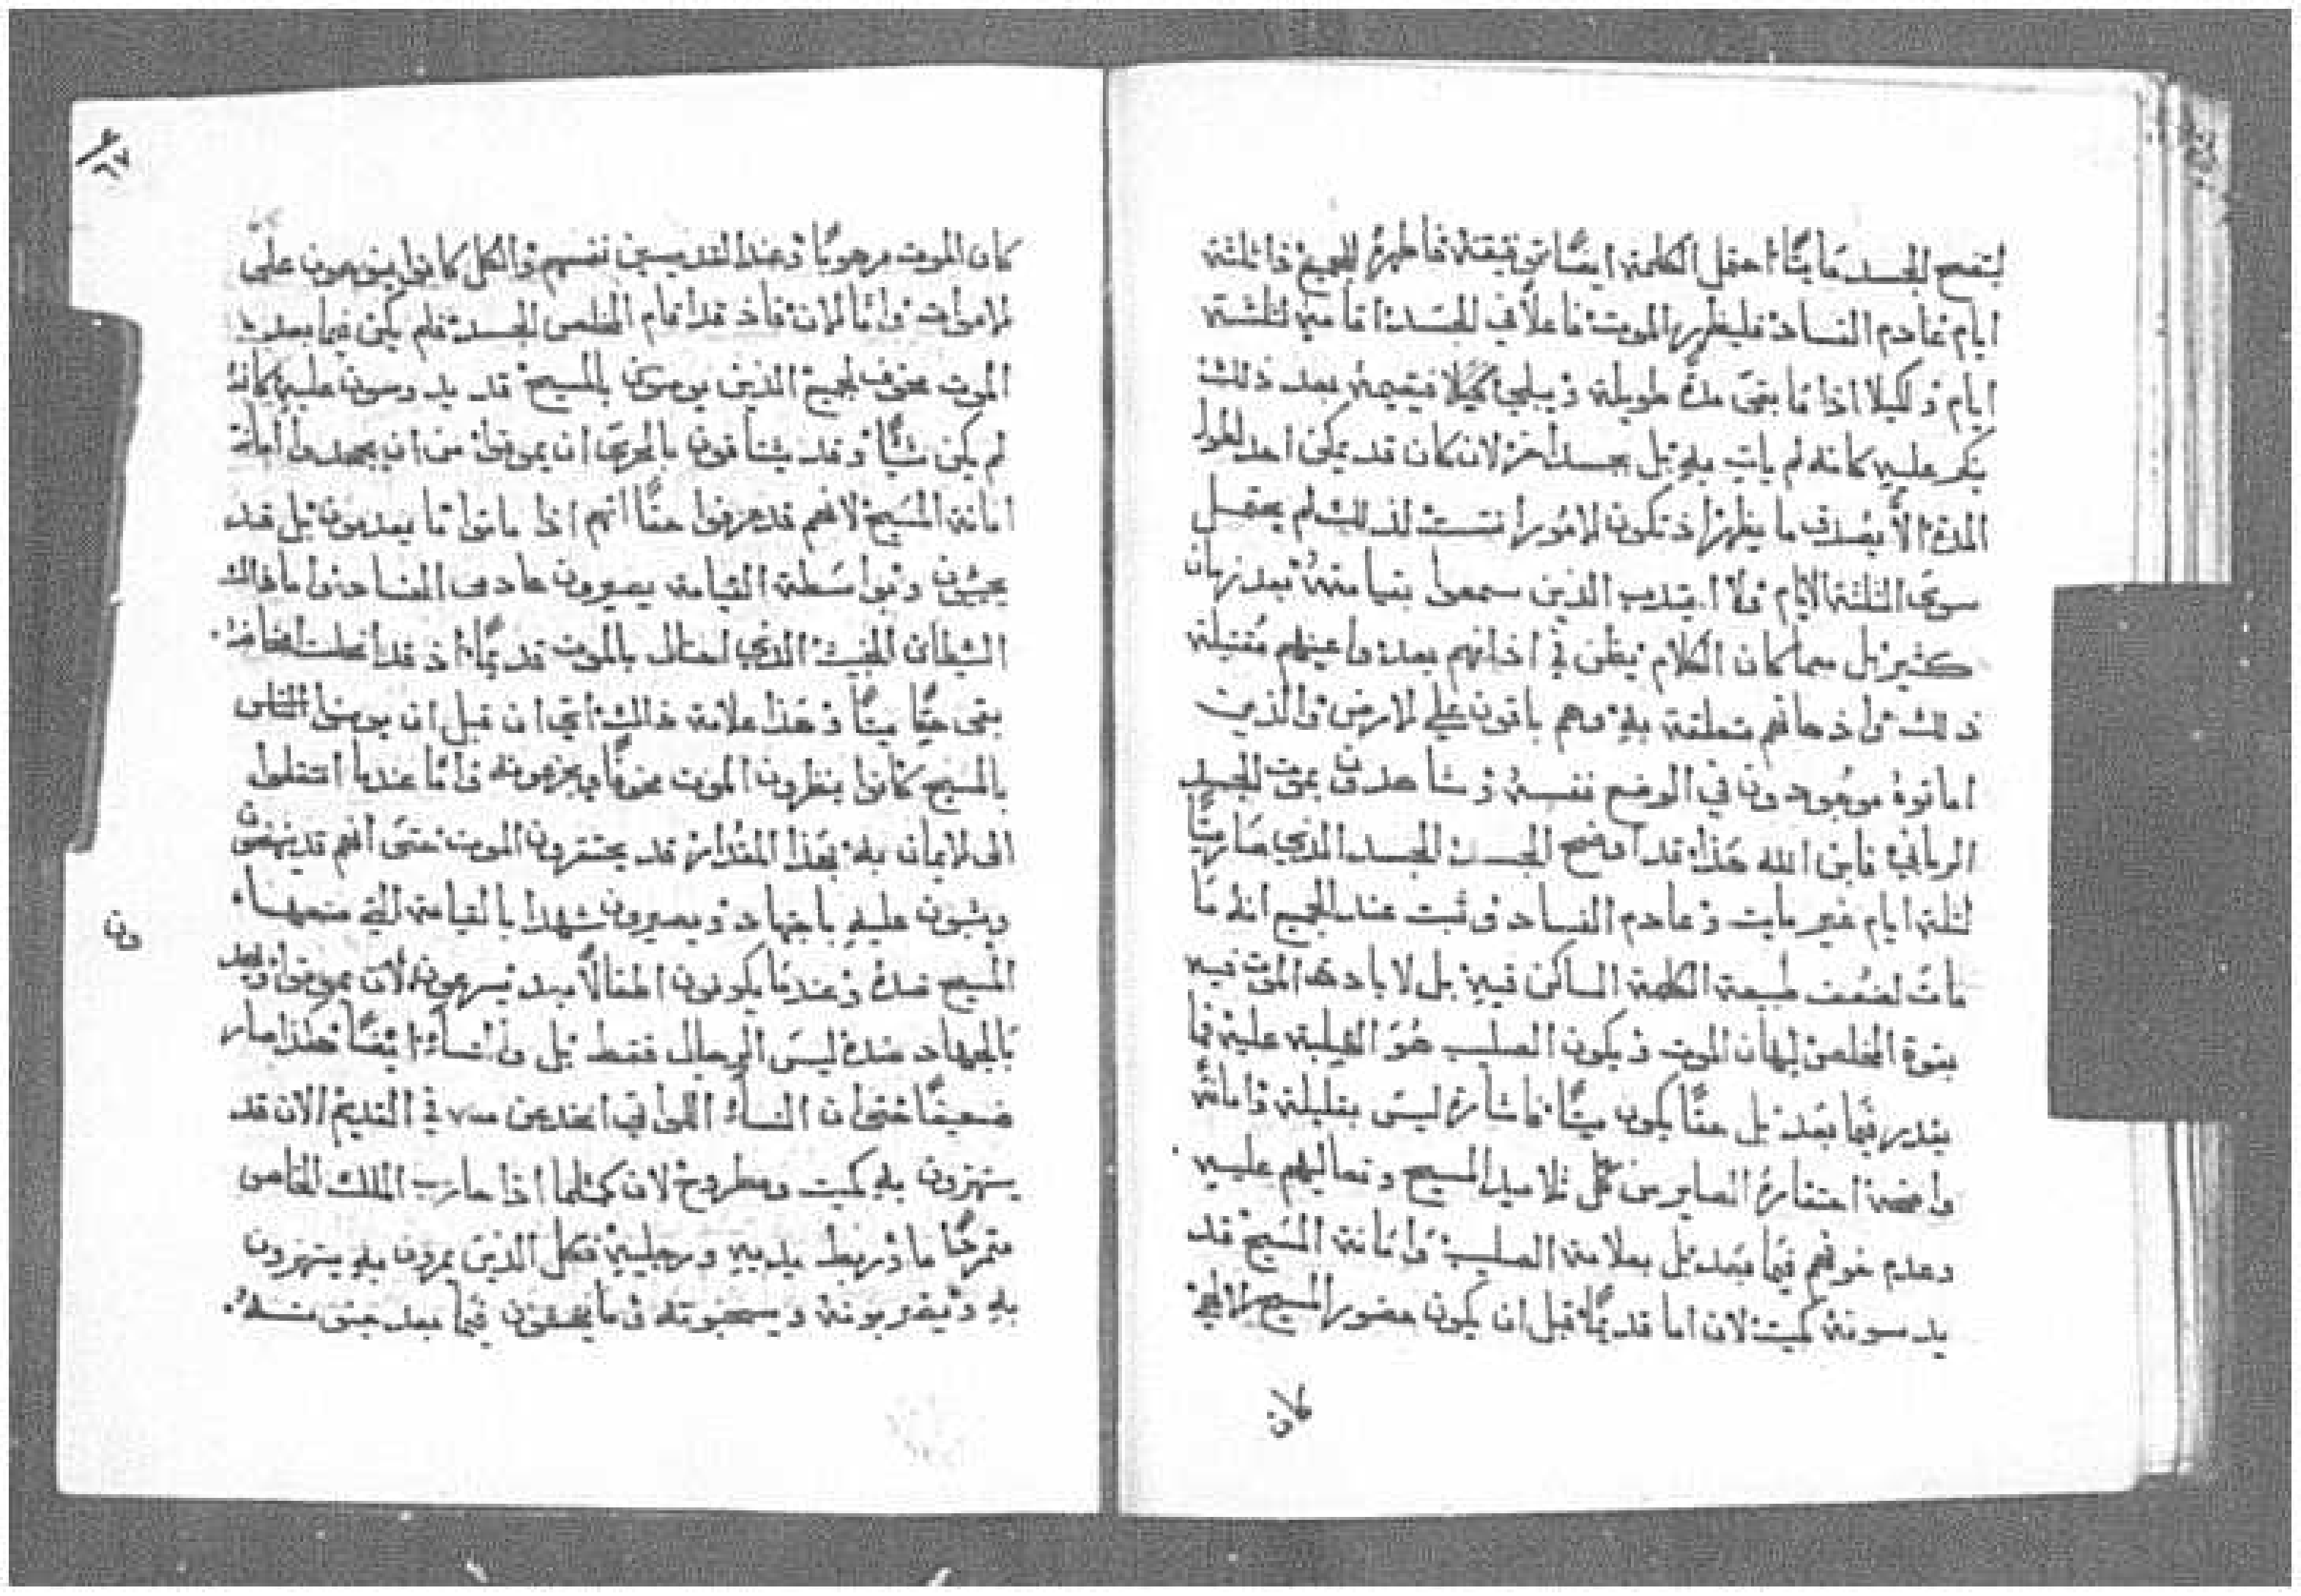 ليتضح الجسد مايتًا احتمل الكلمة ايضًا فاظهره للجميع ذا ثلثة
ايام عادم الفساد فليظهر الموت فاعلاً في الجسد اقامه لثلثة
ايام وكيلا اذا ما بقى مدة طويلة ويبلى كميلا فيقيمه بعد ذلك
ينكر عليه كانه لم يات به بل بجسد اخر لان كان قد يمكن احد لطول
المدة الا يصدق ما يظهر اذ تكون الامور لذلك لم يحتمل
سوى الثلثة الايام ولا الذين سمعوا بقيامته بعد زمان
كثير بل مهما كان الكلام يطن في اذانهم بعد واعينهم مقتبلة
ذلك واذهانهم متعلقة به وهم باقون على الارض والذين
اماتوه موجودون في الموضع نفسه وشاهدون بموت الجسد
الرباني فابن الله هذا قد اوضح الجسد الذي صار ميتًا
لثلثة ايام غير مايت وعادم الفساد وثبت عند الجميع انه ما
مات لضعف طبيعة الكلمة الساكن فيه بل لابادة الموت فيه
بقوة المخلص ليهان الموت ويكون الصليب هو الغلبة عليه فما
يقدر فيما بعد بل حقًا يكون ميتًا فاشارة ليست بقليلة وامانة
واضحة احتقاره الصاير من كل تلاميذ المسيح وتعاليهم عليه
وعدم خوفهم فيما بعد بل بعلامة الصليب وامانة المسيح قد
يدسونه كميت لان اما قديمًا قبل ان يكون حضور المسيح الالهي
كان
كان الموت مرهوبًا وعند القديسين نفسهم والكل كانوا ينوحون على
الاموات واما الان فاذ قد اقام المخلص الجسد فلم يكن فيما بعد
الموت مخوف لجميع الذين يومنون بالمسيح قد يدوسون عليه كانه
لم يكن شيًا وقد يشتاقون بالحرى ان يموتوا من ان يجحدوا امانة
امانة المسيح لانهم قد عرفوا حقًا انهم اذا ماتوا ما يعدمون بل قد
يحيون وبواسطة القيامة يصيرون عادمى الفساد واما ذالك
الشيطان الخبيث الذي احتال بالموت قديمًا اذ قد انحلت مخاضه
بقى حقًا ميتًا وهذا علامة ذالك اي ان قبل ان يومنوا الناس
بالمسيح كانوا ينظرون الموت مخوفًا ويجزعونه واما عندما انتقلوا
الى الايمان به بهذا المقدار قد يحتقرون الموت حتى انهم قد ينهضون
ويثبون عليه باجتهاد ويصيرون شهدا بالقيامة التي صنعها
المسيح ضده وعندما يكونون اطفالاً بعد يسرعون لان يموتوا
بالجهاد ضده ليس الرجال فقط بل والنساء ايضًا هكذا صار
ضعيفًا حتى ان النساء اللواتي انخدعن منه في القديم الان قد
يستهزون به كميت ومطروح لان كمثلما اذا حارب الملك الخاص
متمردًا ما وربط يديه ورجليه فكل الذين يمرون به يستهزون
به ويضربونه ويسحبونه وما يخافون فيما بعد
ون